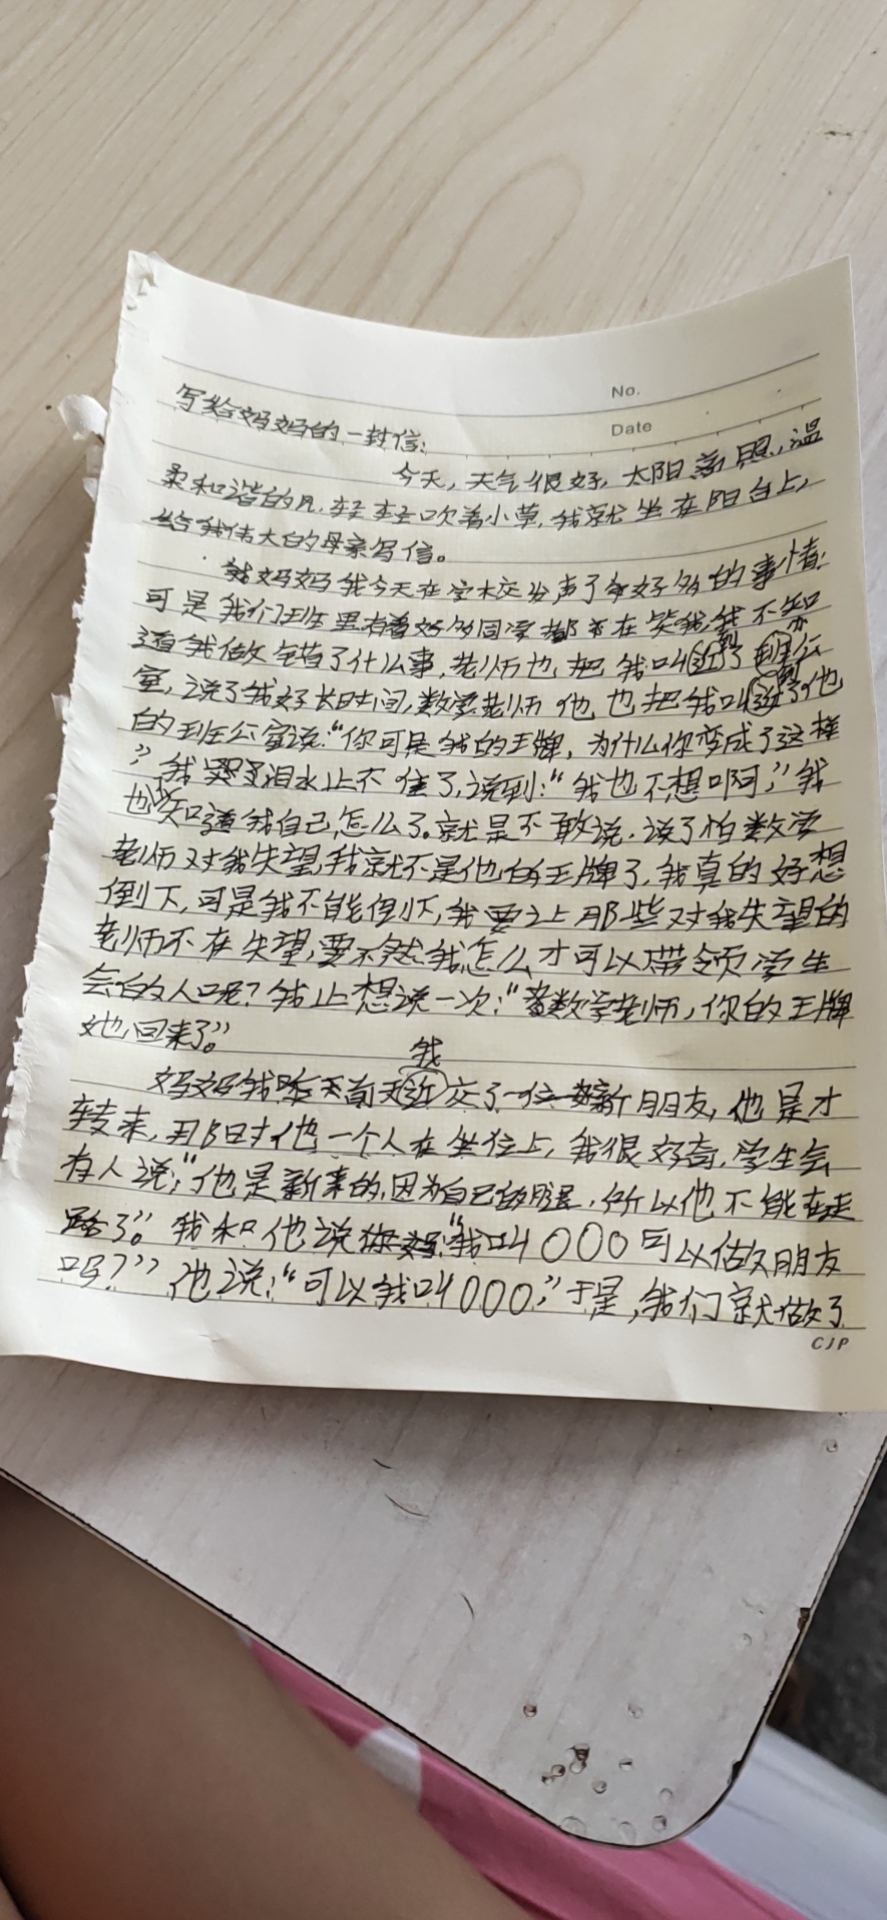 No.
Date
写给妈妈的一封信:
今天,天气很好,太阳高照,温
柔和谐的风,轻轻吹着小草,我就坐在阳台上,
给我伟大的母亲写信。
妈妈我今天在学校发声了好多的事情:
可是我们班里有着好多同学都在笑我,我不知
道我做错了什么事,老师也把我叫到了办公
室,说了我好长时间,数学老师他也把我叫到了他
的班公室说:“你可是我的王牌,为什么你变成了这样
”,我泪水止不住了,说到:“我也不想啊,”我
也不知道我自己怎么了。就是不敢说,说了怕数学
老师对我失望,我就不是他的王牌了,我真的好想
倒下,可是我不能倒下,我要让那些对我失望的
老师不在失望,要不然我怎么才可以带领学生
会的人呢?我止想说一次:“数学老师,你的王牌
她回来了”。
妈妈前天我交了一位新朋友,他是才
转来,那时他一个人在坐位上,我很好奇,学生会
有人说:“他是新来的,因为自己的腿,所以他不能在走
路了”。我和他说“我叫000可以做朋友
吗?”他说:“可以我叫000,”于是,我们就做了
CJP